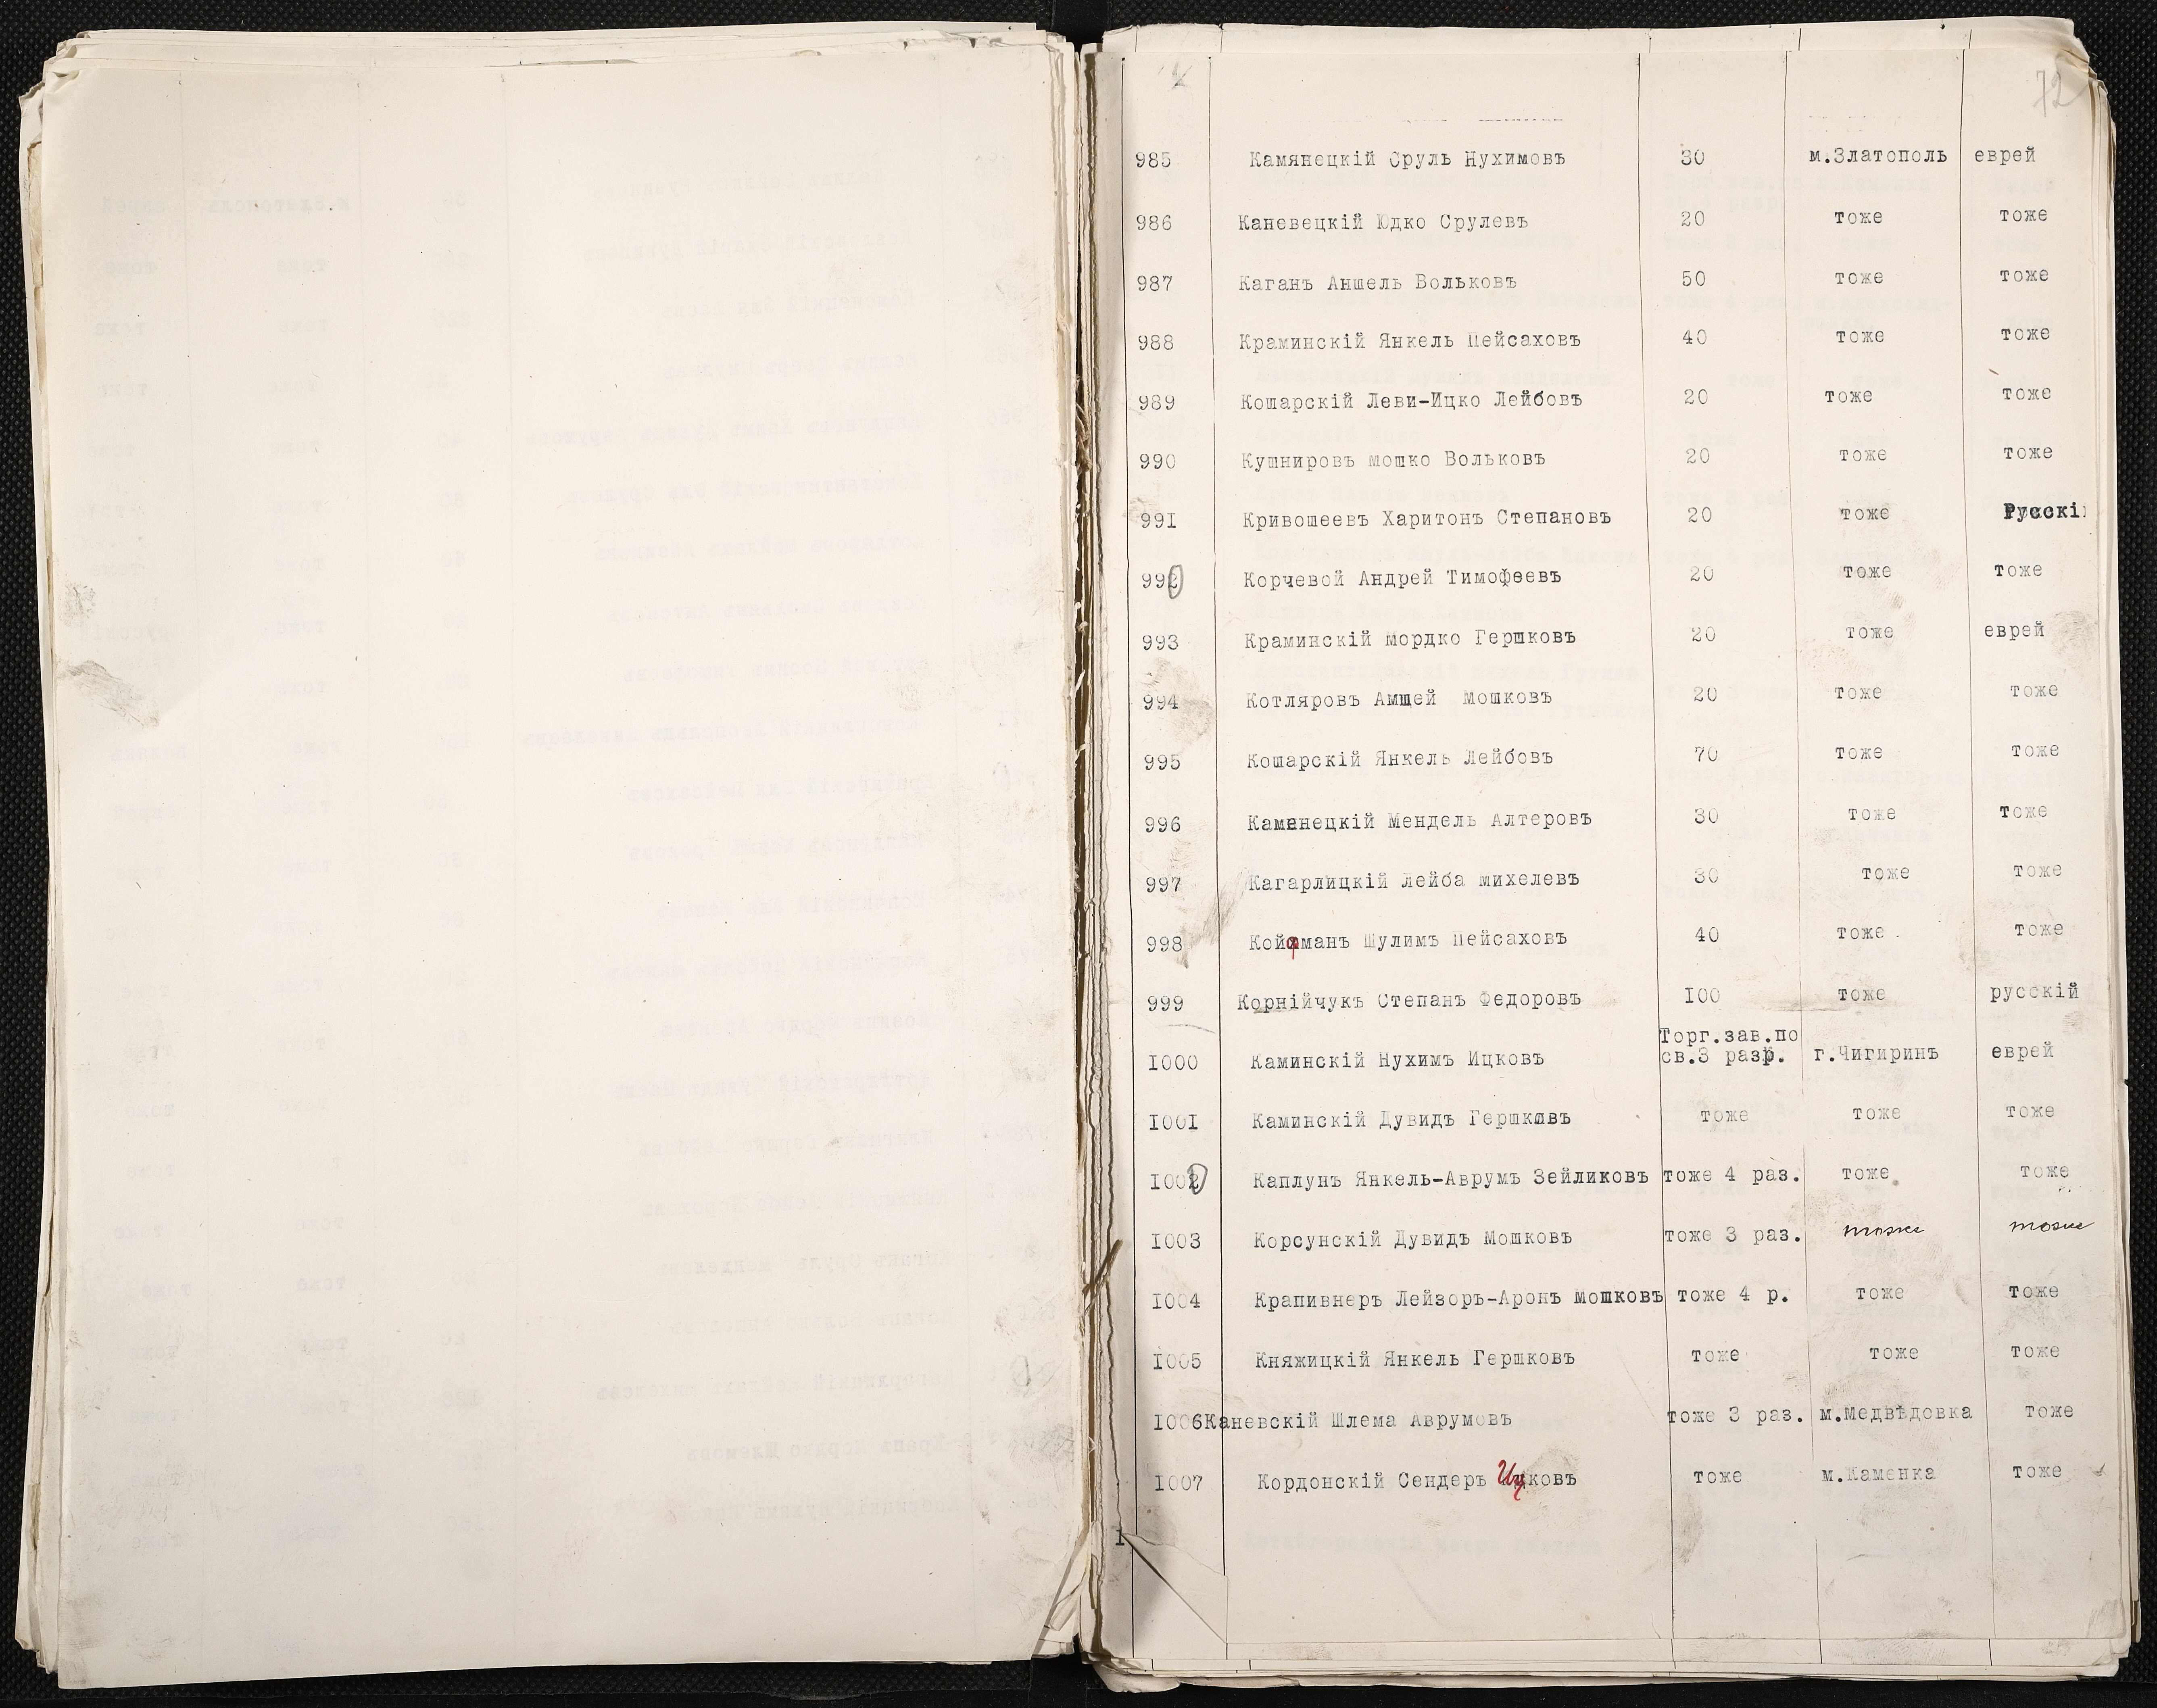 72
985 Камянецкій Сруль Нухимовъ 30 м.Златополь еврей
986 Каневецкій Юдко Срулевъ 20 тоже тоже
987 Каганъ Аншель Вольковъ 50 тоже тоже
988 Краминскій Янкель Пейсаховъ 40 тоже тоже
989 Кошарскій Леви-Ицко Лейбовъ 20 тоже тоже
990 Кушнировъ Мошко Вольковъ 20 тоже тоже
991 Кривошеевъ Харитонъ Степановъ 20 тоже Русскій
992 Корчевой Андрей Тимофеевъ 20 тоже тоже
993 Краминскій Мордко Гершковъ 20 тоже еврей
994 Котляровъ Амшей Мошковъ 20 тоже тоже
995 Кошарскій Янкель Лейбовъ 70 тоже тоже
996 Каменецкій Мендель Алтеровъ 30 тоже тоже
997 Кагарлицкій Лейба Михелевъ 30 тоже тоже
998 Койфманъ Шулимъ Пейсаховъ 40 тоже тоже
999 Корнійчукъ Степанъ Федоровъ I00 тоже русскій
Торг.зав.по
I000 Каминскій Нухимъ Ицковъ св.3 разр. г.Чигиринъ еврей
I00I Каминскій Дувидъ Гершковъ тоже тоже тоже
I002 Каплунъ Янкель-Аврумъ Зейликовъ тоже 4 раз. тоже тоже
I003 Корсунскій Дувидъ Мошковъ тоже 3 раз. тоже тоже
I004 Крапивнеръ Лейзоръ-Аронъ Мошковъ тоже 4 р. тоже тоже
I005 Княжицкій Янкель Гершковъ тоже тоже тоже
I006 Каневскій Шлема Аврумовъ тоже 3 раз. м.Медвѣдовка тоже
I007 Кордонскій Сендеръ Ицковъ тоже м.Каменка тоже